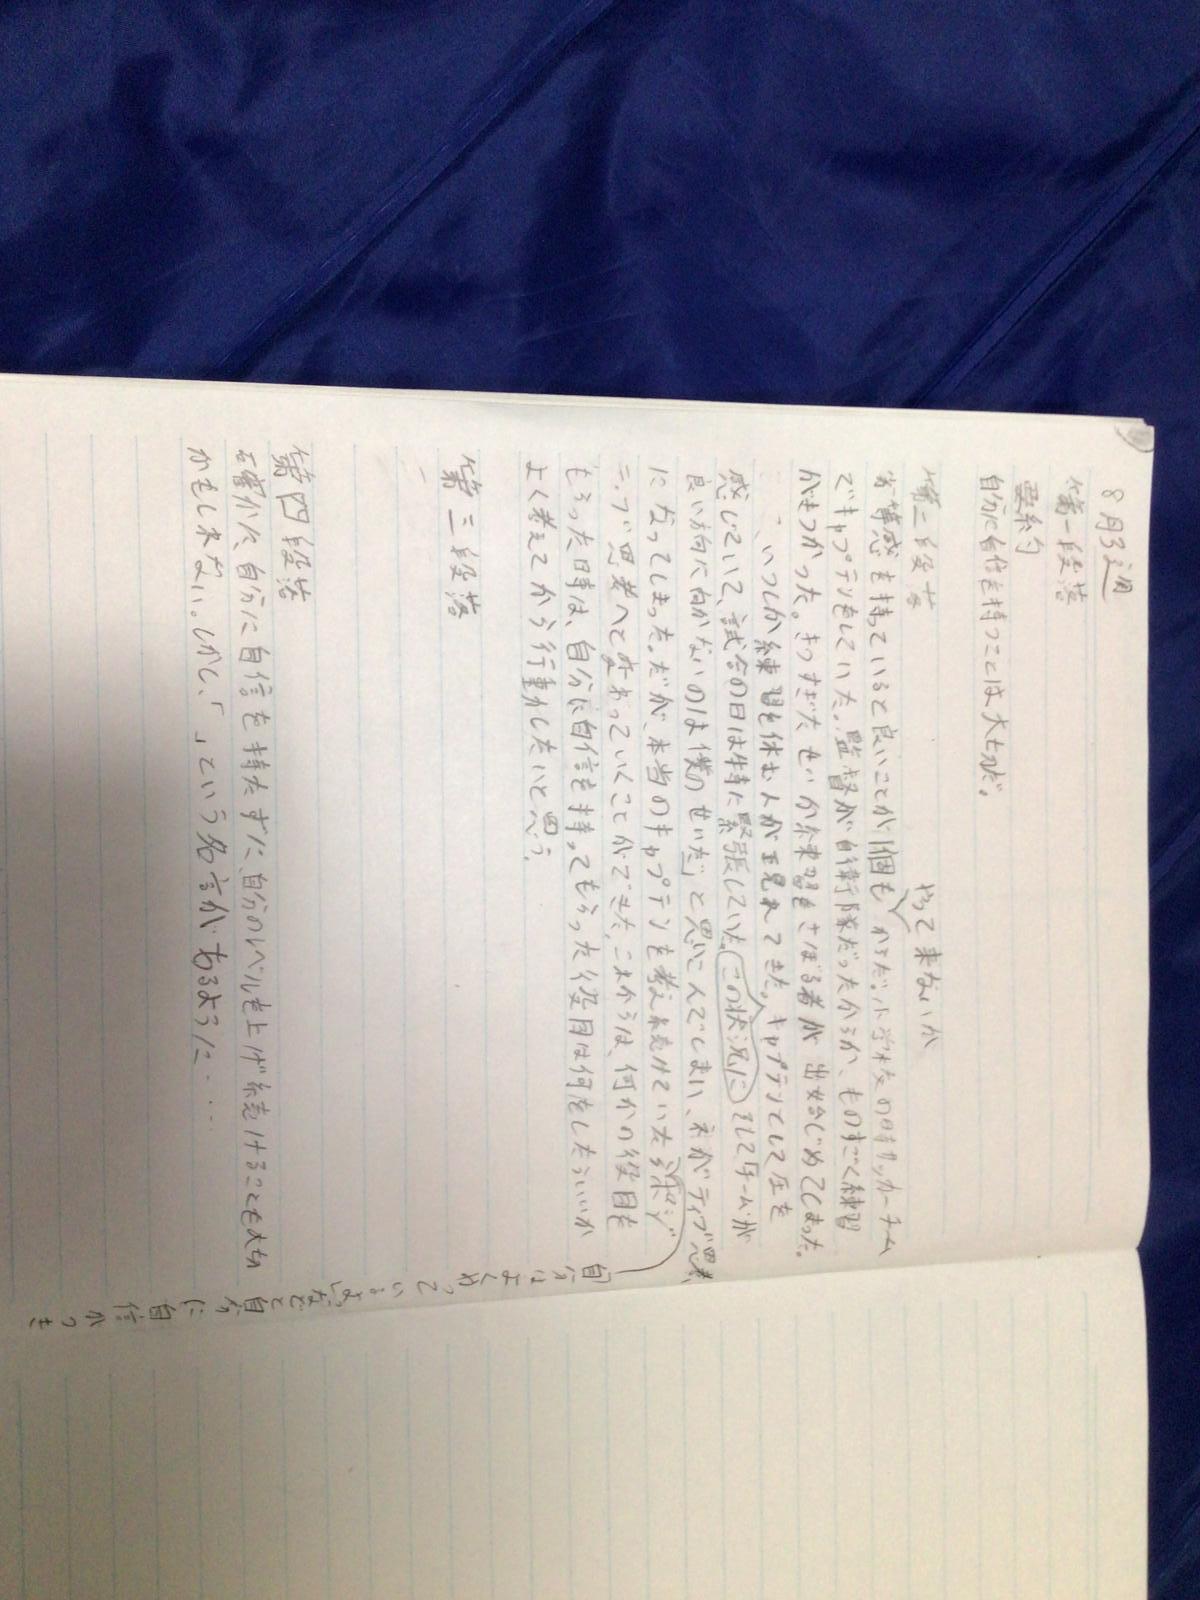 8月3週
第一段落
要約
自分に自信を持つことは大切だ。
第二段落
やって来ないか
劣等感を持っていると良いことが1個も からだ。小学校の時サッカーチーム
でキャプテンをしていた。監督が自衛隊だったからか、ものすごく練習
がきつかった。きつすぎたせいか練習をさぼる者が出始じめてしまった。
いつしか練習を休む人が見れてきた。キャプテンとして圧を
感じていて、試合の日は特に緊張していた。(この状況に)そして「チームが
良い方向に向かないのは僕のせいだ」と思いこんでしまい、ネガティブ思考
になってしまった。だが、本当のキャプテンを考え続けていたらポジ
ティブ思考へと変わっていくことができた。これからは、何かの役目を
もらった時は、自分に自信を持ってもらった役目は何をしたらいいか
よく考えてから行動したいと思う。
「自分はよくやっているよ」などと自分に自信がつき
第三段落
第四段落
確かに、自分に自信を持たずに、自分のレベルを上げ続けることも大切
かもしれない。しかし、「 」という名言があるように・・・